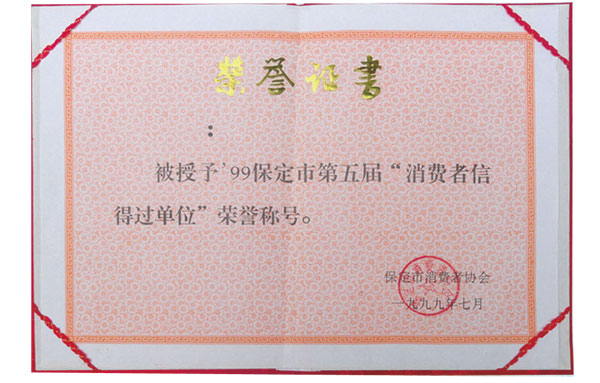 荣誉证书
:
被授予'99保定市第五届“消费者信
得过单位”荣誉称号。
保定市消费者协会
一九九九年七月